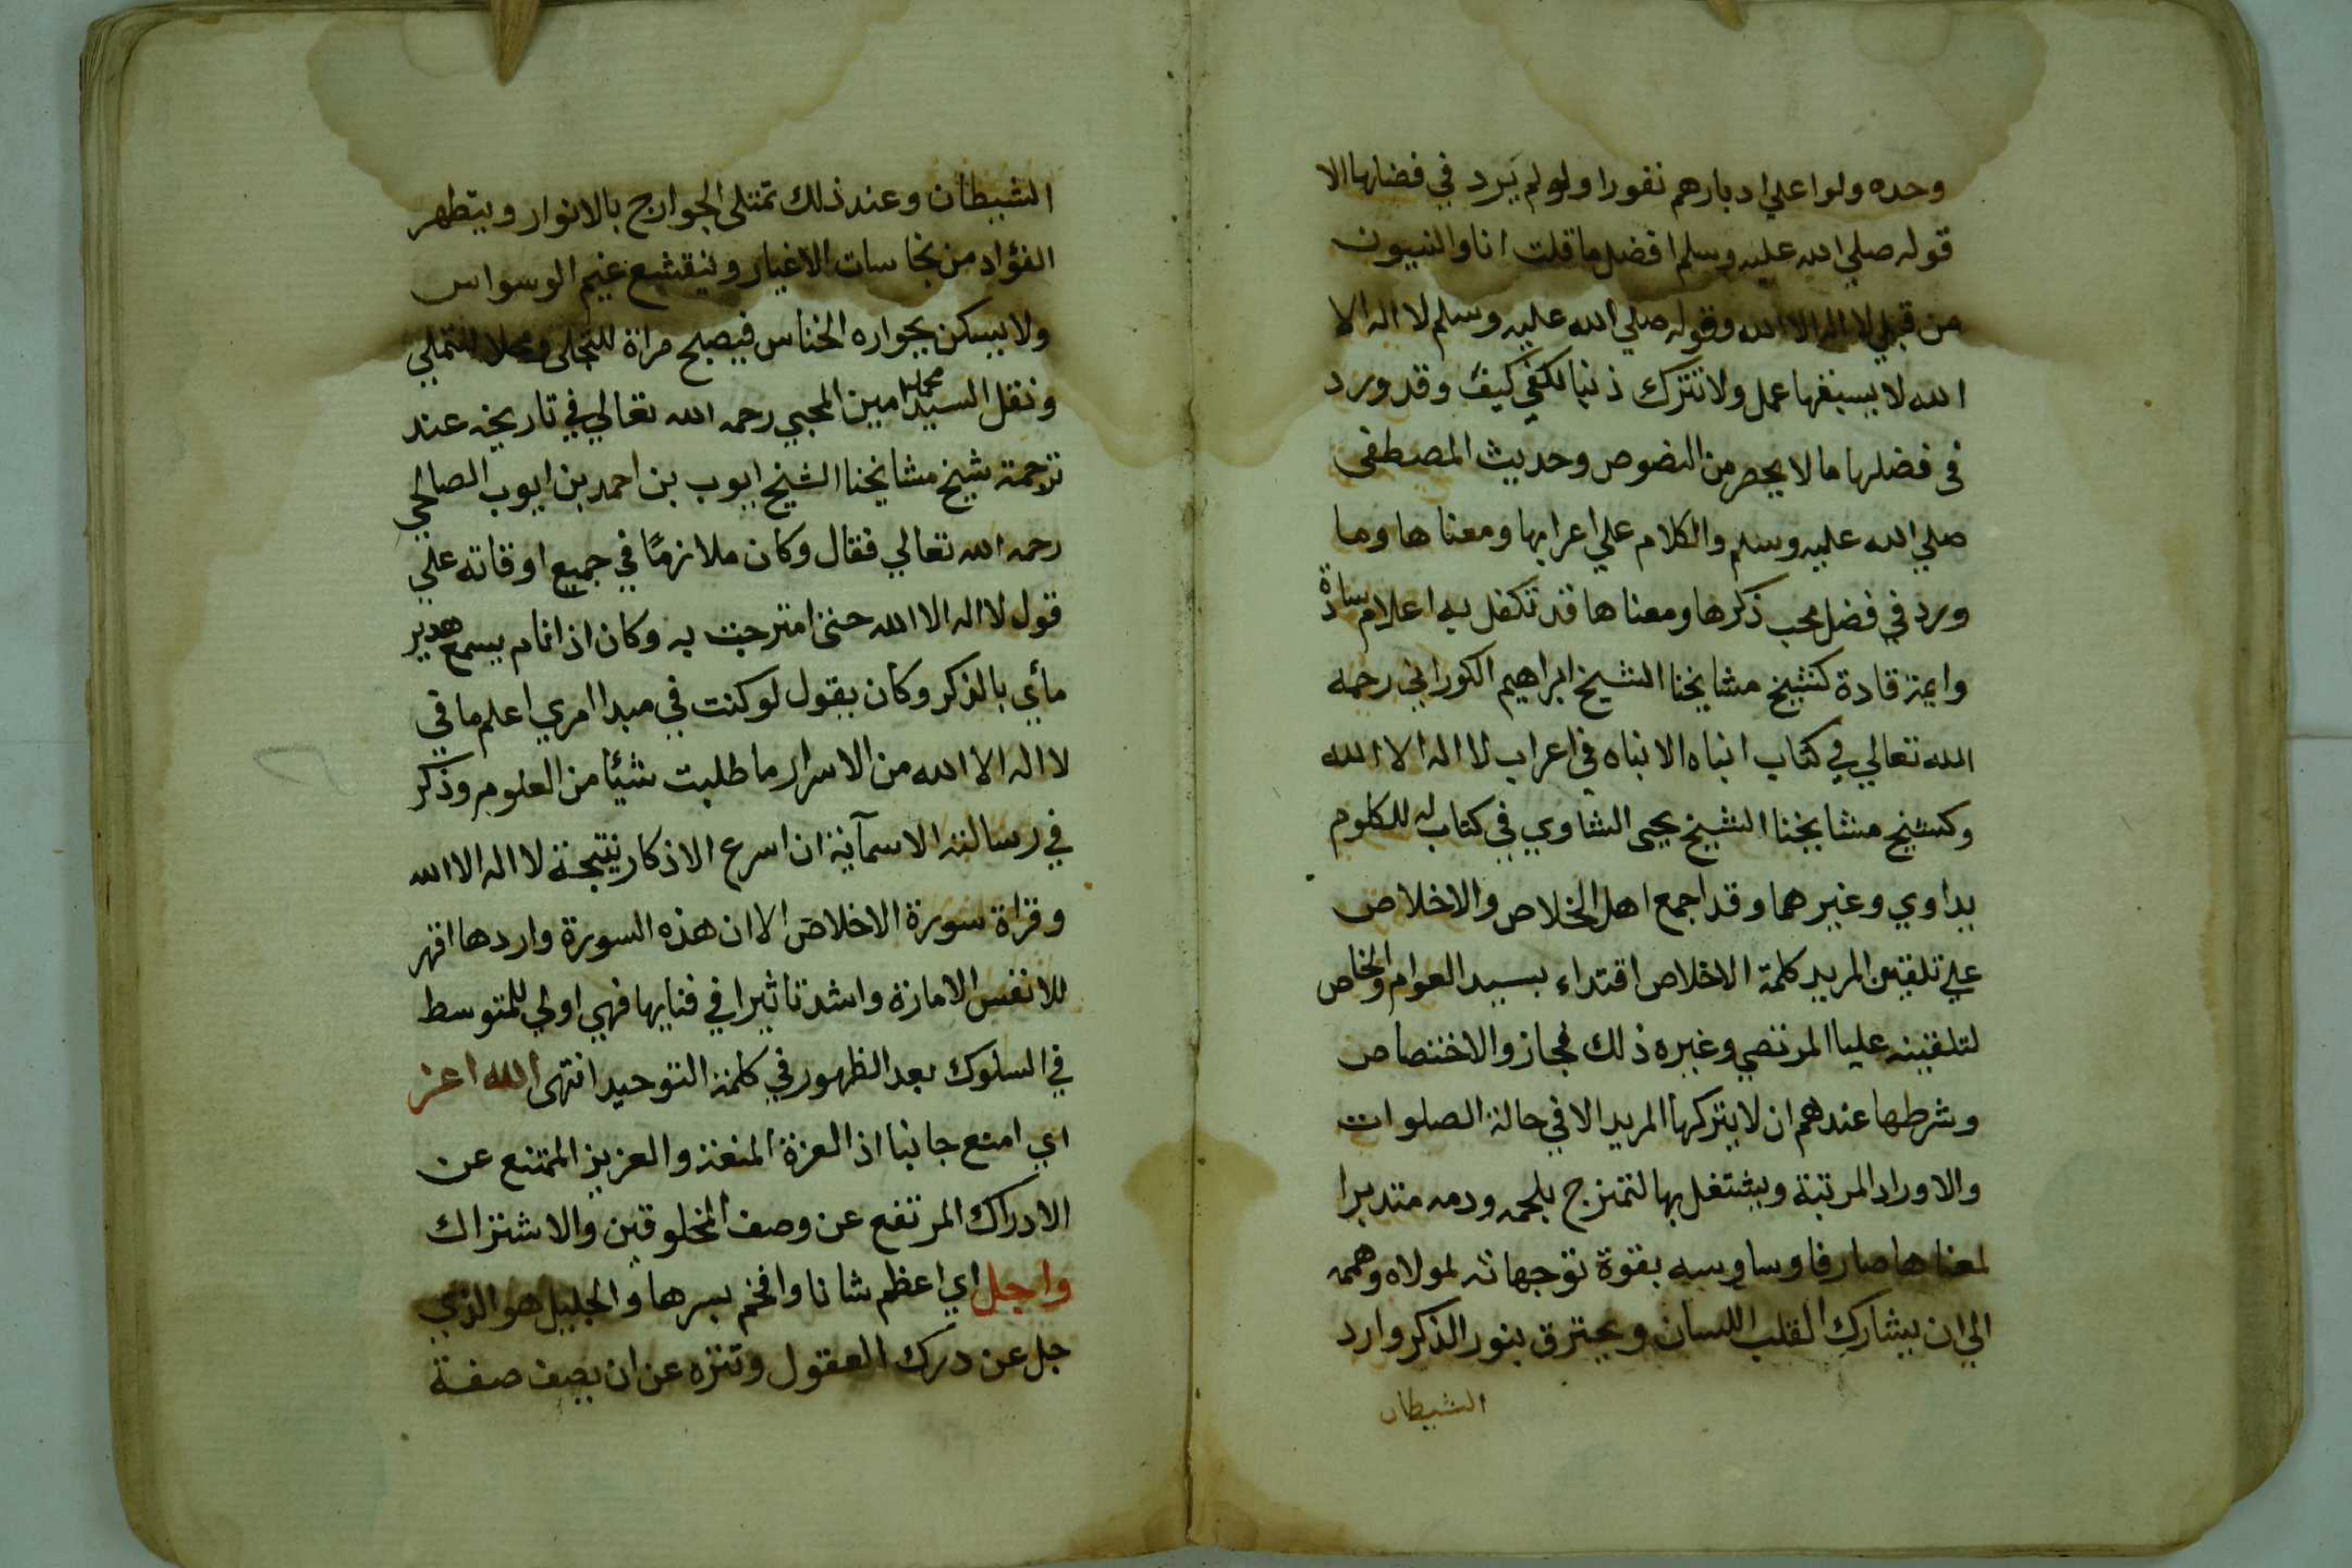 وحده ولوا علي ادبارهم نفورا ولو لم يرد في فضلها الا
قوله صلي الله عليه وسلم افضل ما قلت انا والنبيون
من قبلي لا اله الا الله وقوله صلي الله عليه وسلم لا اله الا
الله لا يسبقها عمل ولا تترك ذنبا لكفي كيف وقد ورد
في فضلها ما لا يحصر من النصوص وحديث المصطفى
صلي الله عليه وسلم والكلام علي اعرابها ومعناها وما
ورد في فضل محب ذكرها ومعناها قد تكفل به اعلام سادة
وايمة قادة كشيخ مشايخنا الشيخ ابراهيم الكوراني رحمه
الله تعالي في كتاب انباه الانباه في اعراب لا اله الا الله
وكشيخ مشايخنا الشيخ يحيى الشاوي في كتاب له للكلوم
يداوي وغيرهما وقد اجمع اهل الخلاص والاخلاص
علي تلقين المريد كلمة الاخلاص اقتداء بسيد العوام والخاص
لتلقينه عليا المرتضي وغيره ذلك فجاز والاختصاص
وشرطها عندهم ان لا يتركها المريد الا في حالة الصلوات
والاوراد المرتبة ويشتغل بها لتمتزج بلحمه ودمه متدبرا
لمعناها صارفا وساوسه بقوة توجهاته لمولاه وهممه
الي ان يشارك القلب اللسان ويحترق بنور الذكر وارد
الشيطان
الشيطان وعند ذلك تمتلى الجوارح بالانوار ويتطهر
الفؤاد من نجاسات الاغيار وينقشع غيم الوسواس
ولا يسكن بجواره الخناس فيصبح مراة للتجلى ومحلا للتملي
ونقل السيد محمد امين المحبي رحمه الله تعالي في تاريخه عند
ترجمة شيخ مشايخنا الشيخ ايوب بن احمد بن ايوب الصالحي
رحمه الله تعالي فقال وكان ملازمًا في جميع اوقاته علي
قول لا اله الا الله حتى امتزجت به وكان اذا نام يسمع هدير
مأي بالذكر وكان يقول لو كنت في مبدا امري اعلم ما في
لا اله الا الله من الاسرار ما طلبت شيًا من العلوم وذكر
في رسالته الاسمآئية ان اسرع الاذكار نتيجة لا اله الا الله
وقراة سورة الاخلاص الا ان هذه السورة واردها اقهر
للانفس الامارة واشد تاثيرا في فنايها فهي اولي للمتوسط
في السلوك بعد الظهور في كلمة التوحيد انتهى الله اعز
اي امنع جانبا اذ العزة المنعة والعزيز الممتنع عن
الادراك المرتفع عن وصف المخلوقين والاشتراك
واجل اي اعظم شانا وافخم بسرها والجليل هو الذي
جل عن درك العقول وتنزه عن ان يصف صفة